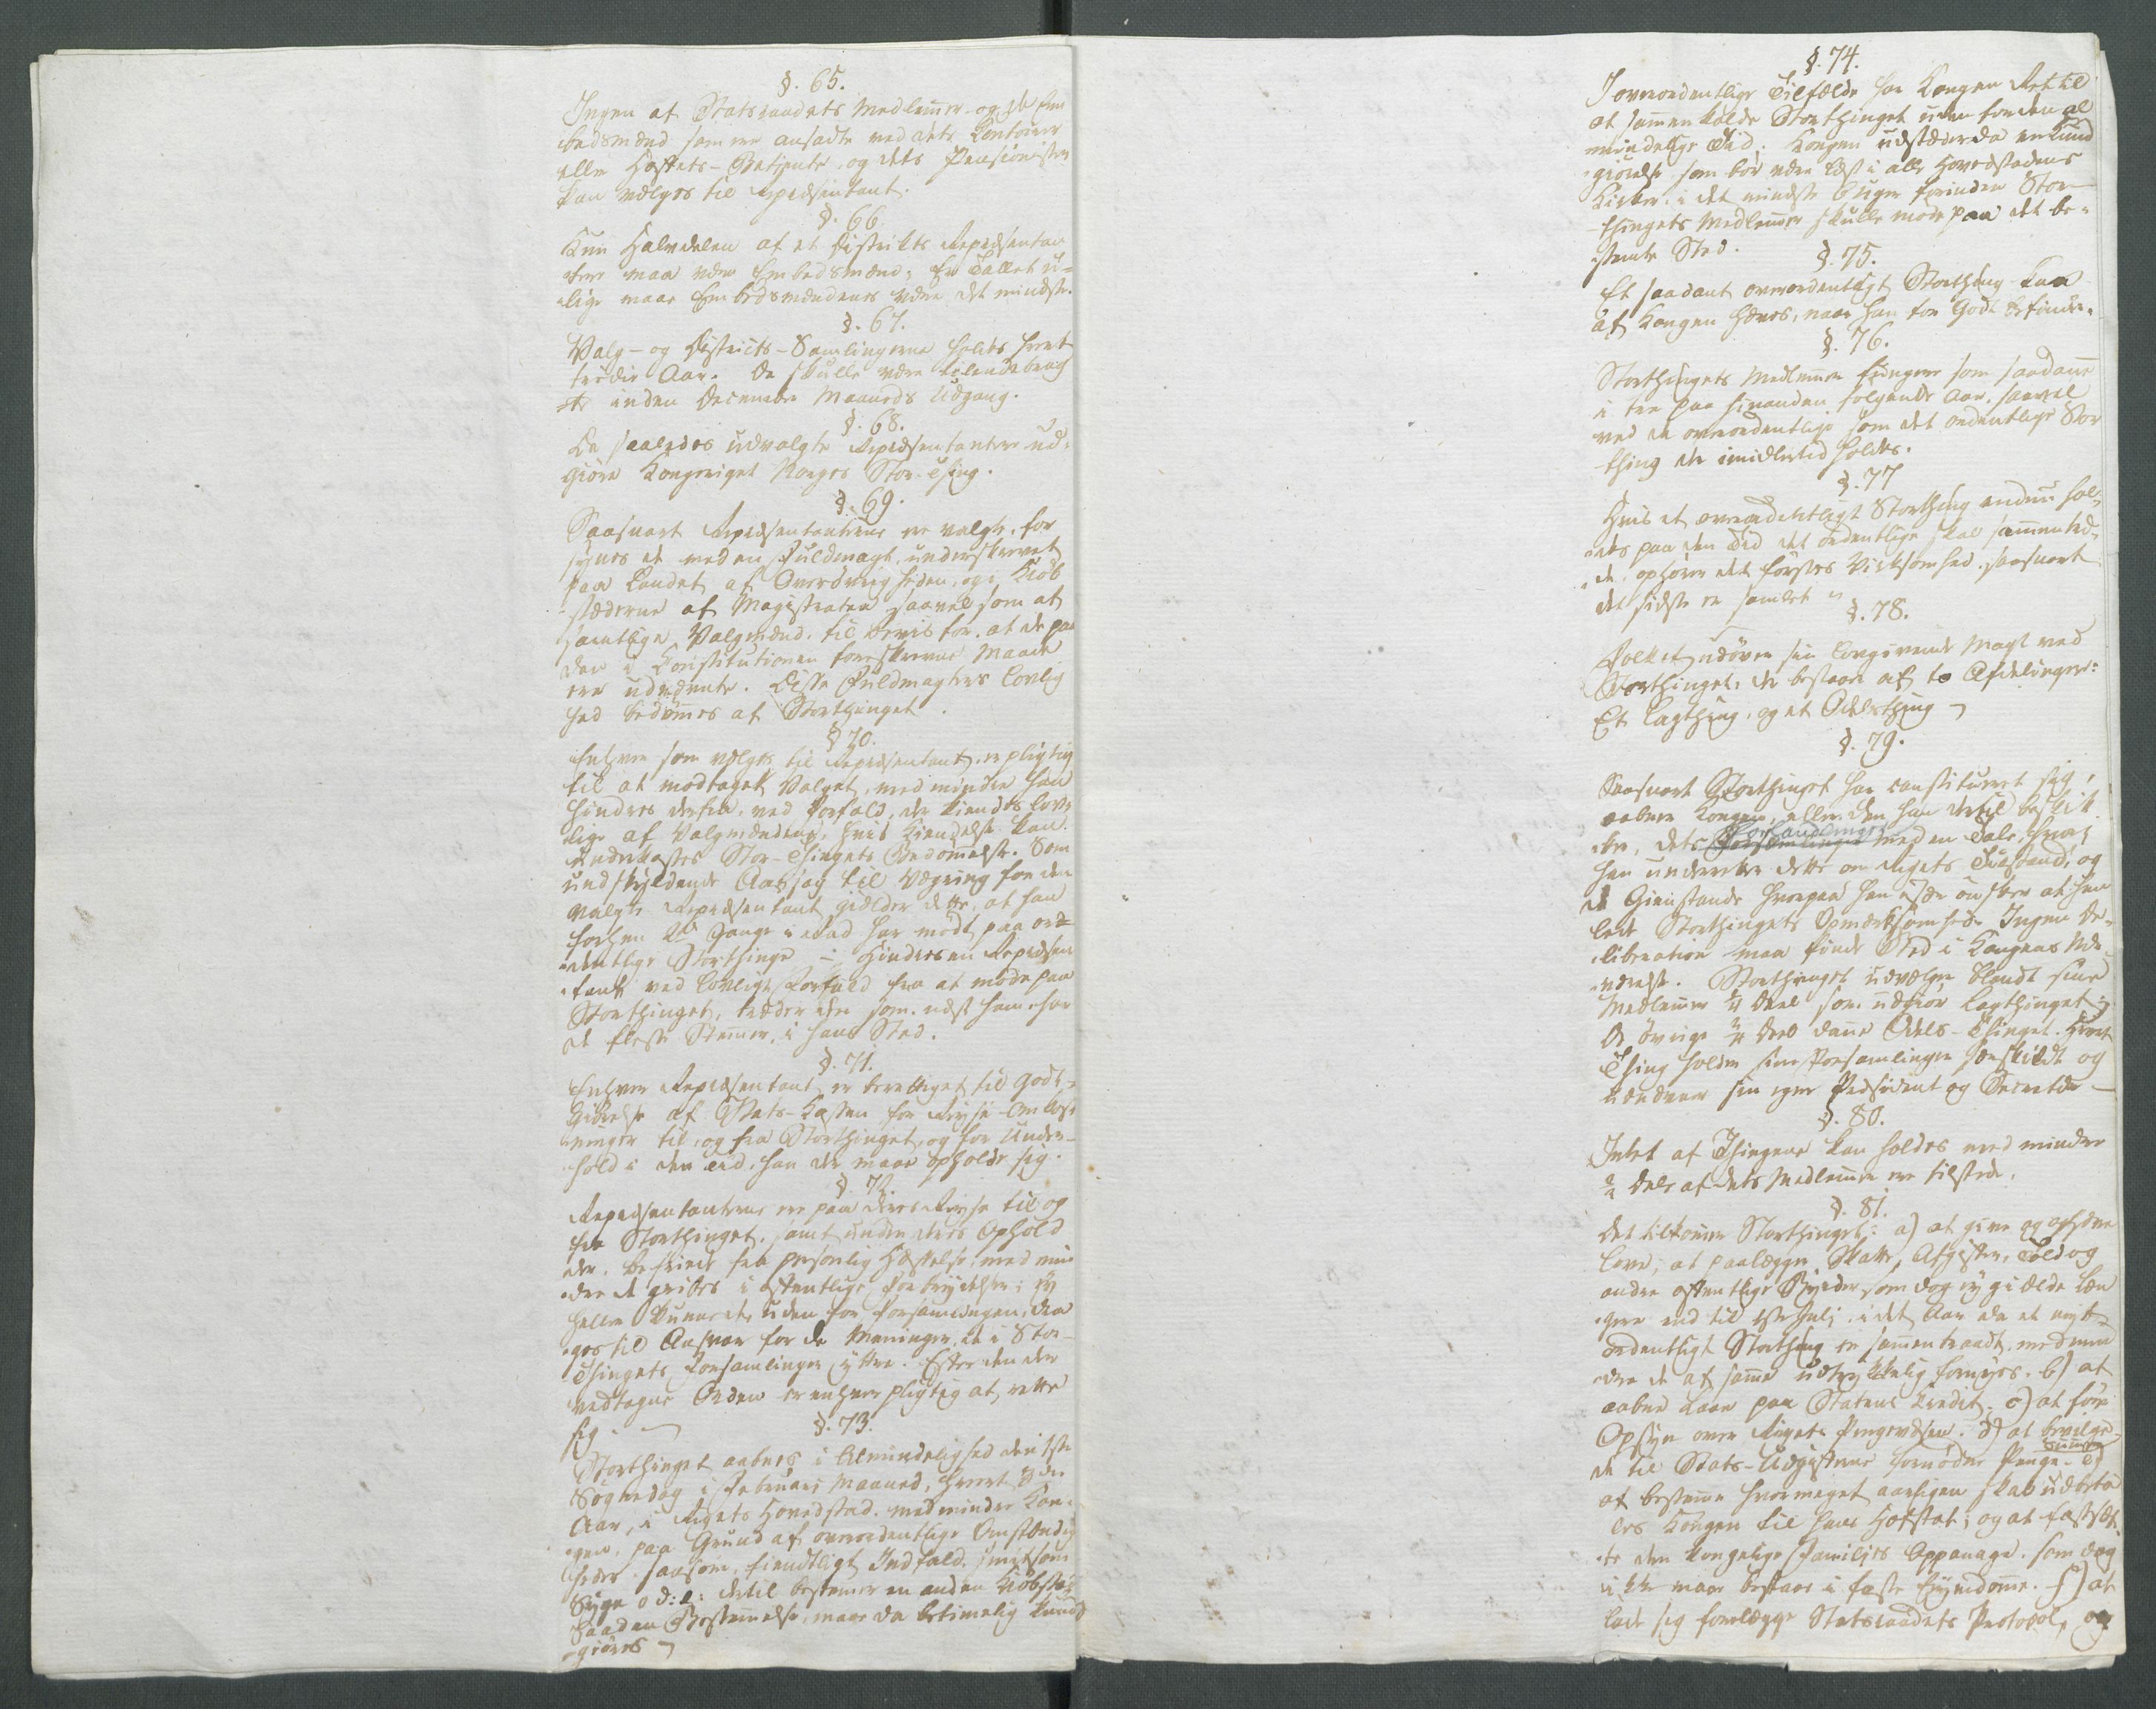 §. 65.
Ingen af Statsraadets Medlemer og de Em
bedsmænd som ere ansadte ved dets Contoirer
eller Hoffets-Betjente, og dets Pensionister
kan vælges til Repræsentant.
§. 66.
Kun Halvdelen af et Distrikts Repræsentan
tere maa være Embedsmænd; Er Tallet u-
lige maae Embedsmændenes være det mindste.
§. 67.
Valg- og Districts-Samlingerne holdes hvert
tredie Aar. De skulle være tilendebrag
te inden December Maaneds Udgang.
§. 68.
De saaledes udvalgte Repræsentantere ud-
giöre Kongeriget Norges Stor-Thing.
§. 69.
Saasnart Repræsentanterne ere valgte, for
synes de med en Fuldmagt, underskrevet
paa Landet af Øvrigheden, og i Kiöb
stæderne af Magistraten saavelsom af
samtlige Valgmænd, til Beviis for, at de paa
den i Constitutionen foreskrevne Maade
ere udnævnte. Disse Fuldmagters Lovlig
hed bedömmes af Storthinget.
§ 70.
Enhver som vælges til Repræsentant, er pligtig
til at modtage Valget, med mindre han
hindres derfra, ved Forfald, der kiendes lov
lige af Valgmændene, hvis Kiendelse kan
Underkastes Stor-Thingets Bedömmelse. Som
undskyldende Aarsag til Vægring for den
valgte Repræsentant gielder dette, at han
forhen 2de Gange i Rad har mödt paa ord-
entlige Storthinge – Hindres en Repræsen
tant ved lovligt Forfald fra at möde paa
Storthinget, træder den som næst ham har
de fleste Stemer, i hans Sted.
§. 71.
Enhver Repræsentant er berettiget til Godt-
giörelse af Stats-Cassen for Reyse-Omkost
ninger til, og fra Storthinget, og for Under-
hold i den Tid, han der maae opholde sig.
§ 72.
Repræsentanterne ere paa deres Reyse til og
fra Storthinget, samt under deres Ophold
der, befriede fra personlig Hæftelse; med min
dre de gribes i offentlige Forbrydelser; ey
heller kunne de, uden for Forsamlingen, dra
ges til Ansvar for de Meninger, de i Stor-
Thingets Forsamlinger yttre. Efter den der
vedtagne Orden er enhver pligtig at rette
sig.
§. 73.
Storthinget aabnes i Almindelighed den 1ste
Sögnedag i Februari Maaned, hvert 3die
Aar, i Rigets Hovedstad, med mindre Kon-
gen, paa Grund af overordentlige Omstændig
heder, saasom fiendtligt Indfald, smitsom
Syge o: d: l: dertil bestemer en anden Kiöbstæd
Saadan Bestemelse, maae da betimelig kund
giöres
§. 74.
I overordentlige Tilfælde har Kongen Ret til
at sammenkalde Storthinget uden for den al
mindelige Tid. Kongen udstæder da en Kund
giörelse, som bör være læst i alle Hovedstadens
Kirker, i det mindste 6 Uger forinden Stor-
thingets Medlemer skulle möde paa det be-
stemte Sted.
§. 75.
Et saadant overordentligt Storthing kan
af Kongen hæves, naar han for Godt befinder.
§. 76.
Storthingets Medlemer fungere som saadane
i tre paa hinanden fölgende Aar, saavel
ved de overordentlige som det ordentlige Stor
thing der imidlertid holdes.
§. 77
Hvis et overordentligt Storthing endnu hol-
des paa den Tid det ordentlige skal sammentræ-
de, ophörer det förstes Virksomhed, saasnart
det sidste er samlet
§. 78.
Folket udöver sin lovgivende Magt ved
Storthinget, der bestaaer af to Afdelinger:
Et Lagthing, og et Odelsthing
§. 79.
Saasnart Storthinget har constitueret sig,
aabner Kongen, eller den han dertil beskik
ker, dets Forsamlinger Forhandlinger med en Tale, hvori
han underretter dette om Rigets Tilstand, og
de Gienstande hvorpaa han især önsker at hen
lede Storthingets Opmærksomhed. Ingen De-
liberation maa finde Sted i Kongens Nær-
værelse. Storthinget udvælger blandt sine
Medlemer ¼ Deel som udgiör Lagthinget;
de övrige ¾ Deel dane Odels-Thinget. Hvert
Thing holder sine Forsamlinger særskildt og
udnævner sin egen Præsident og Secretær –
§. 80.
Intet af Thingene kan holdes med mindre
⅔ Dele af dets Medlemer ere tilstede.
§. 81.
Det tilkomer Storthinget: a) at give og ophæve
Love; at paalægge Skatter, Afgifter, Told og
andre offentlige Byrder som dog ey gielde læn
gere end til 1ste Julj, i det Aar da et nyt
ordentligt Storthing er sammentraadt, med min
dre de af same udtrykkelig fornyes. b) at
aabne Laan paa Statens Credit. c) at före
Opsyn over Rigets Pengevæsen. d) at bevilge
de til Stats-Udgifterne fornödne Penge-Summer e)
at bestemme hvormeget aarligen skal udbeta
les Kongen til hans Hofstat; og at fastsæt
te den kongelige Familjes Appanage, som dog
ikke maae bestaae i faste Eyendomme. f) at
lade sig forelægge Statsraadets Protocol, og